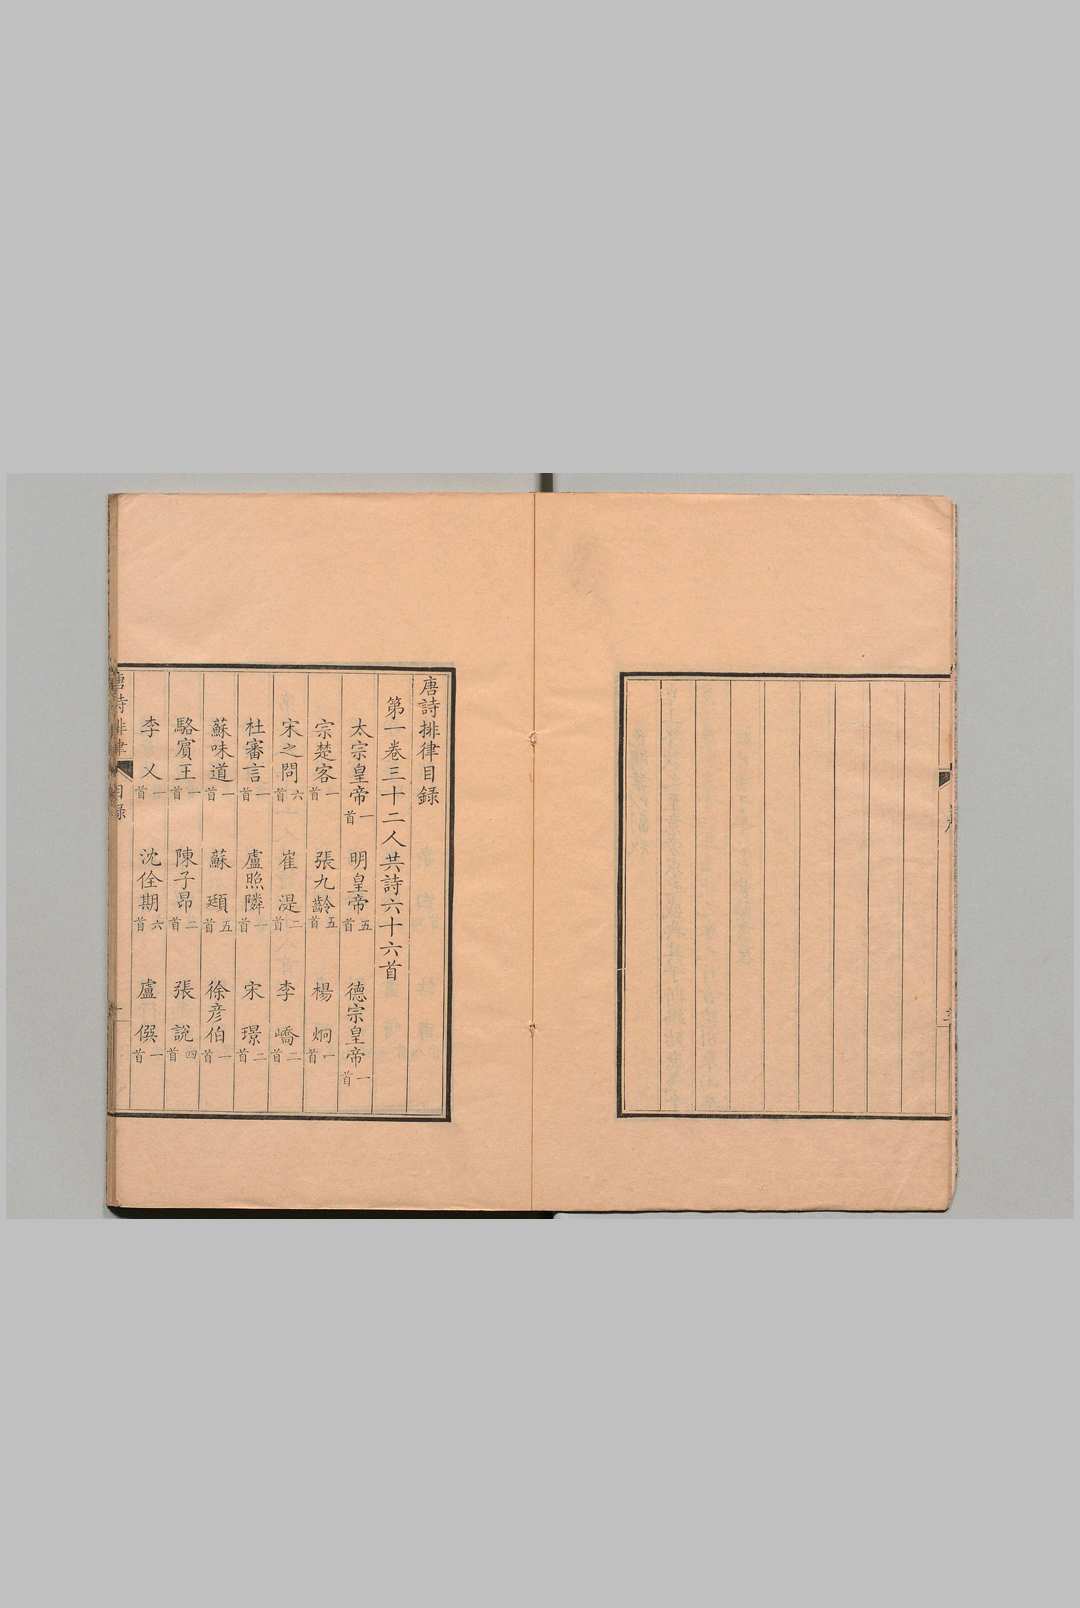 唐詩排律目録
第一卷三十二人共詩六十六首
太宗皇帝一首 明皇帝五首 德宗皇帝一首
宗楚客一首 張九齡五首 楊炯一首
宋之問六首 崔湜二首 李嶠二首
杜審言一首 盧照隣一首 宋璟二首
蘇味道一首 蘇頲五首 徐彦伯一首
駱賓王一首 陳子昂二首 張說四首
李乂一首 沈佺期六首 盧僎一首
唐詩排律 目録 一